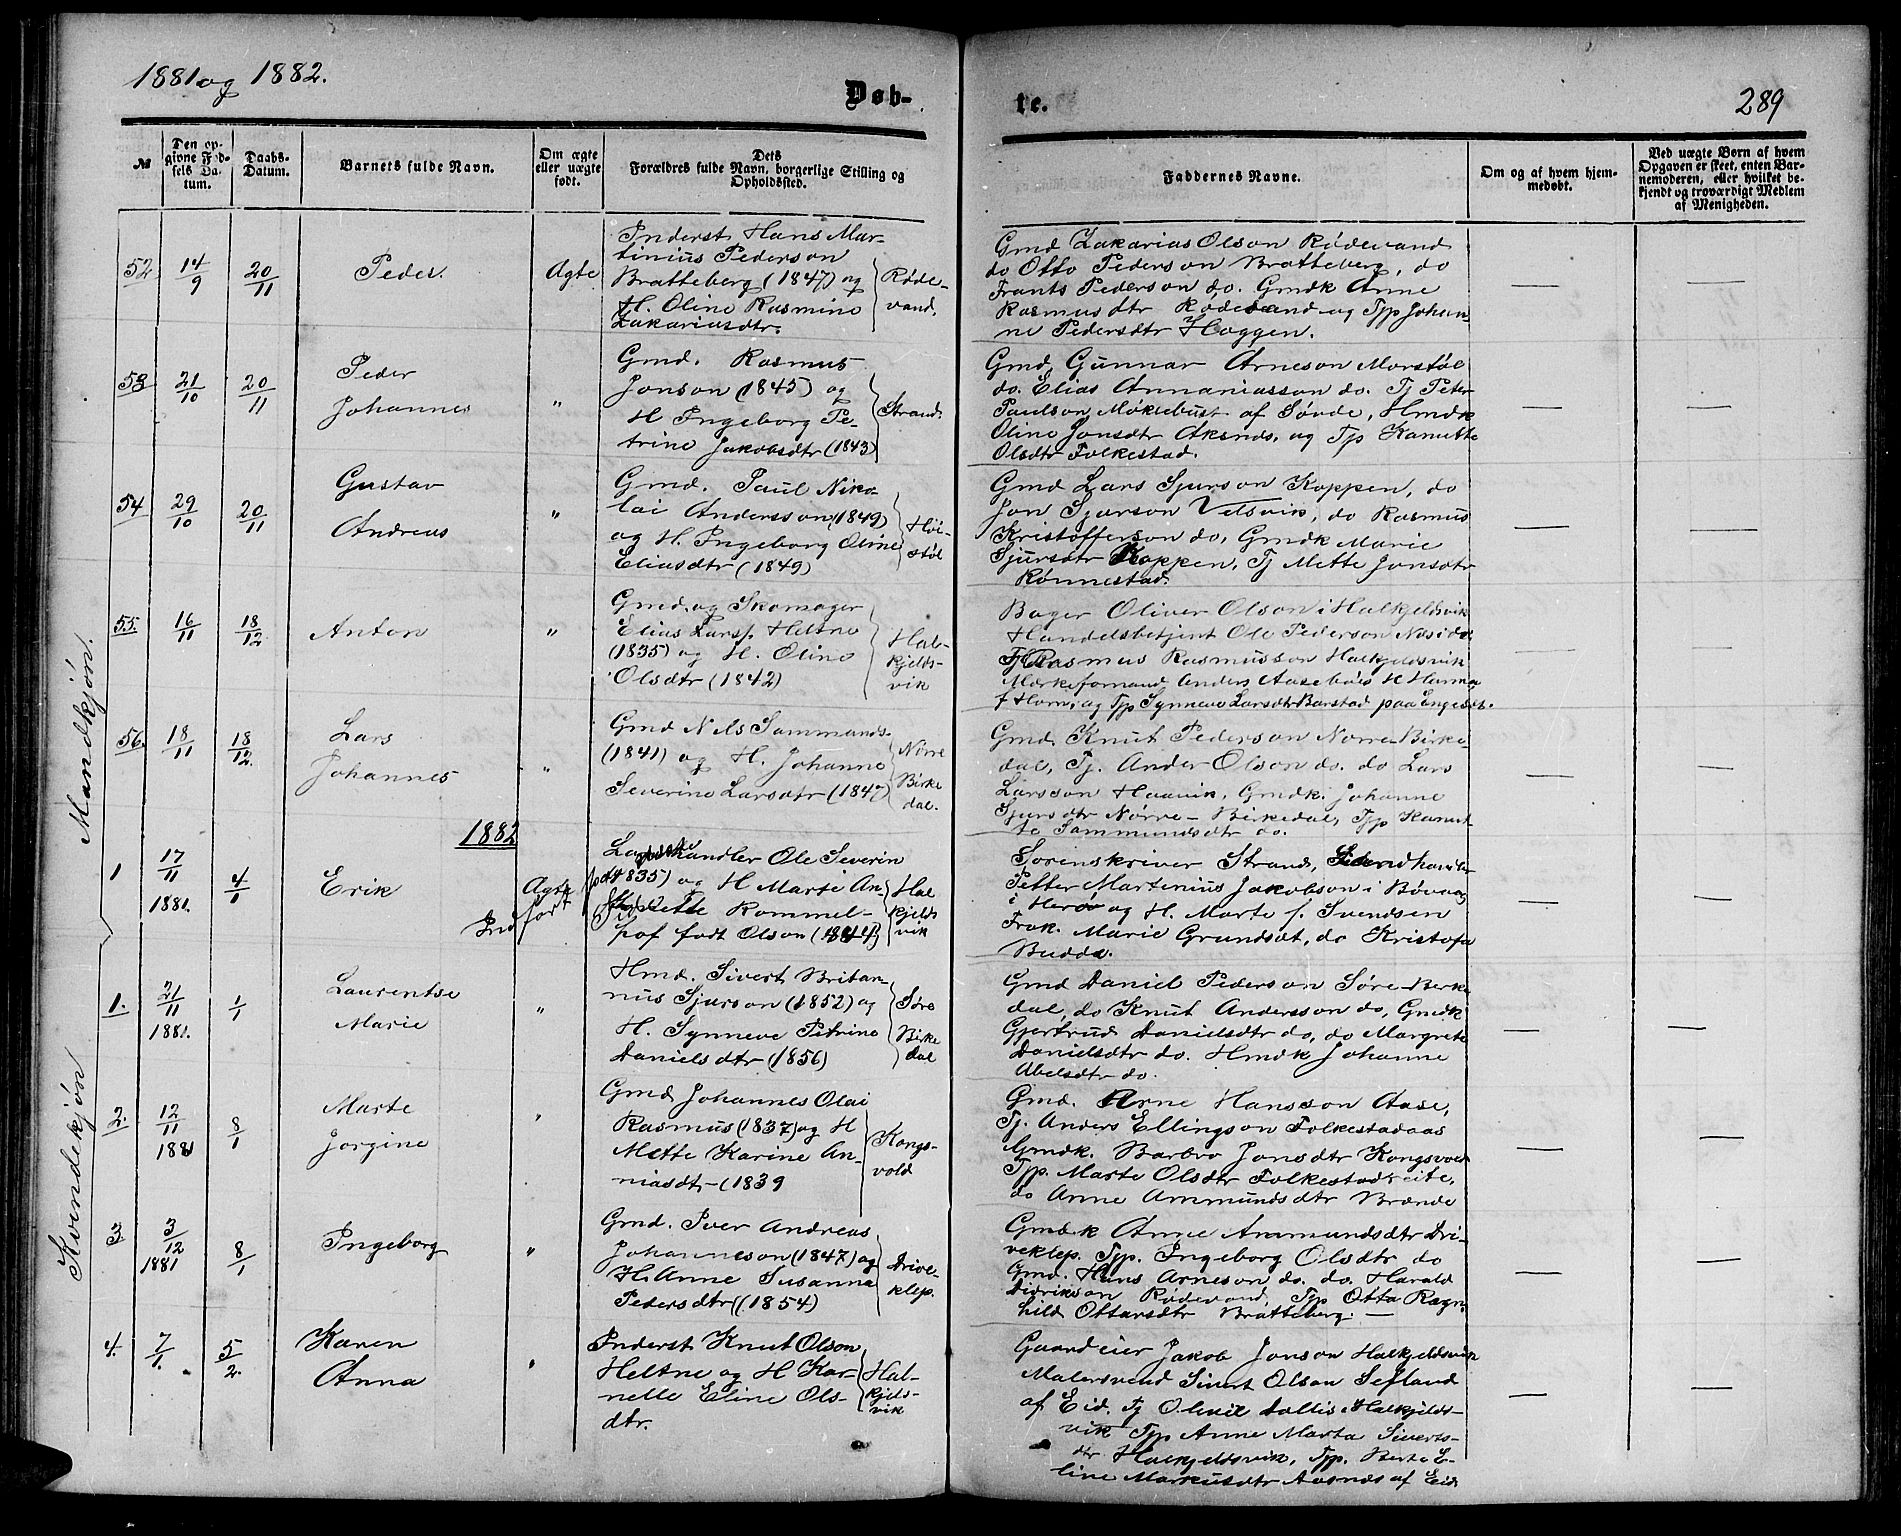 1881 og 1882.
Døb-
te.
289
№
Den op-
givne Fød-
sels Da-
tum.
Daabs-
Datum.
Barnets fulde Navn.
Om ægte
eller uægte
født.
Dets
Forældres fulde Navn, borgerlige Stilling og
Opholdssted.
Faddernes Navne.
Om og af hvem hjem-
medøbt.
Ved uægte Børn af hvem
Opgaven er skeet, enten Bar-
nemoderen, eller hvilket be-
kjendt og troværdigt Medlem
af Menigheden.
Mandkjøn.
52 14/9 20/11 Peder. Ægte
Inderst Hans Mar-
tinius Pederson
Bratteberg (1847) og
H. Oline Rasmine
Zakariasdtr.
Røde-
vand.
Gmd Zakarias Olson Rødevand
do Otto Pederson Bratteberg, do
Frants Pederson do. Gmdk Anne
Rasmusdtr Rødevand og Tjp Johan-
ne Pedersdtr Haggen.
53 21/10 20/11 Peder
Johannes "
Gmd. Rasmus
Jonson (1845) og
H Ingeborg Pe-
trine Jakobsdtr (1843)
Strand.
Gmd. Gunnar Arneson Morstøl
do. Elias Annaniasson do. Tj Peter
Paulson Møklebust af Søvde, Hmdk
Oline Jonsdtr Aksnes, og Tjp Kanutte
Olsdtr Folkestad.
54 29/10 20/11 Gustav
Andreas "
Gmd. Paul Niko-
lai Andersson (1849)
og H. Ingeborg Oline
Eliasdtr (1849)
Høi-
støl
Gmd Lars Sjurson Koppen, do
Jon Sjurson Vatsvik, do Rasmus
Kristofferson do, Gmdk Marie
Sjursdtr Koppen, Tj Mette Jonsdtr
Rønnestad.
55. 16/11 18/12 Anton "
Gmd. og Skomager
Elias Larss. Heltne
(1835) og H. Oline
Olsdtr (1842)
Hal-
kjelds-
vik
Bager Oliver Olson i Halkjeldsvik
Handelsbetjent Ole Pederson Næs i do.
Tj Rasmus Rasmusson Halkjeldsvik
f Horn, og Tjp Synneve Larsdtr Barstad paa Engeset.
56. 18/11 18/12. Lars
Johannes "
Gmd Nils Sammunds.
(1841) og H. Johanne
Severine Larsdtr (1847)
Nørre
Birke
dal.
Gmd. Knut Pederson Nørre-Birke-
dal, Tj. Ander Olson do. do Lars
Larsson Haavik, Gmdk. Johanne
Sjursdtr Nørre-Birkedal, Tjp Kanut-
te Sammundsdtr do.
1882
1 17/11 1881. 4/1 Erik Ægte
Indført
Landhandler Ole Severin
(1835) og H Marte An-
Rommel-
hof født Olson (1844)
Hal
kjelds
vik
Sorenskriver Strand, Landhandler
Petter Martenius Jakobson i Bøvaag
i Herø og H. Marte f. Svendsen
Frøk. Marie Grundset, do Kristofa
Budda.
Kvindekjøn
1. 21/11 1881. 1/1 Laurentse
Marie "
Hmd. Sivert Britan-
nus Sjurson (1852) og
H. Synneve Petrine
Danielsdtr (1856)
Søre
Birke
dal
Gmd Daniel Pederson Søre-Berke
dal, do Knut Andersson do, Gmdk
Gjertrud Danielsdtr do, do Margrete
Danielsdtr do. Hmdk Johanne
Abelsdtr do.
2. 12/11 1881 8/1 Marte
Jorgine "
Gmd Johannes Olai
Rasmus (1837) og H
Mette Karine An-
niasdtr (1839
Kongs-
vold
Gmd. Arne Hansson Aase,
Tj. Anders Ellingson Folkestadaas
Gmdk. Barbro Jonsdtr Kongsvold
Tjp. Marte Olsdtr Folkestadreite,
do Anne Ammundsdtr Brænde
3 3/12 1881 8/1 Ingeborg "
Gmd. Iver Andreas
Johanneson (1847) og
H. Anne Susanna
Pedersdtr (1854)
Drive-
klep.
Gmdk Anne Ammundsdtr Dri-
veklep. Tjp. Ingeborg Olsdtr do
Gmd. Hans Arneson do. do. Harald
Didrikson Rødevand, Tjp Otta Ragn
hild Ottarsdtr Bratteberg. —
4. 7/1. 5/2. Karen
Anna "
Inderst Knut Olson
Heltne og H Kar-
nelle Eline Ols-
dtr.
Hal-
kjelds-
vik
Gaardeier Jakob Jonson Halkjeldsvik
Malersvend Sivert Olson Sefland
af Eid. Tj Oluf Halkjelds-
vik Tjp Anne Marta Siverts-
dtr Halkjeldsvik, Tjp. Berte E-
line Markusdtr Aasnes af Eid